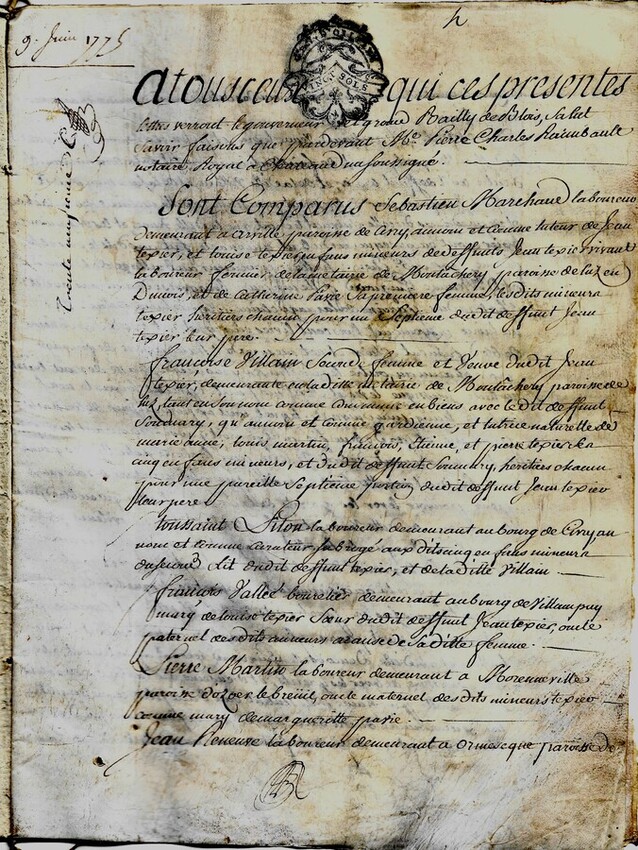 9. Juin 1775
h
GEN. D'ORLEANS
VINGT SOLS
A tous ceux qui ces presentes
lettres verront le gouverneur grand Bailly de Blois, Salut
Savoir faisons que pardevant Me. Pierre Charles Raimbault
notaire Royal a Chateaudun soussigné.
Sont Comparus Sebastien Marchand laboureur
demeurant a paroisse de au nom et comme tuteur de Jean
texier, et Louise texier, enfans mineurs de deffunts Jean texier vivant
laboureur fermier de la metairie de Moulachery paroisse de luz en
Dunois, et de Catherine Pavie sa premiere femme, lesdits mineurs
texier heritiers chacun pour un Septieme dudit deffunt Jean
texier leur pere.
francoise Villain Seconde femme et Veuve dudit Jean
texier, demeurante en laditte metairie de Moulachery paroisse de
luz, tant en son nom comme Commune en biens avec ledit deffunt
Son mary, qu'au nom et comme gardienne, et tutrice naturelle de
marie anne, louis martin, françois, Etienne, et pierre texier ses
cinq enfans mineurs, et dudit deffunt Son mary, heritiers chacun
pour une pareille Septieme portion dudit deffunt Jean texier
leur pere
toussaint laboureur demeurant au bourg de au
nom et comme Curateur Subrogé aux dits cinq enfans mineurs
du second Lit dudit deffunt texier, et de laditte Villain.
françois Vallée bourelier demeurant au bourg de Villampuy
mary de louise texier Sœur dudit deffunt Jean texier, oncle
paternel desdits mineurs a cause de laditte femme.
Pierre Martin laboureur demeurant a Morenneville
paroise d'ozoer le breuil, oncle maternel desdits mineurs texier
comme mary de margueritte pavie.
Jean laboureur demeurant a ormesque paroisse de